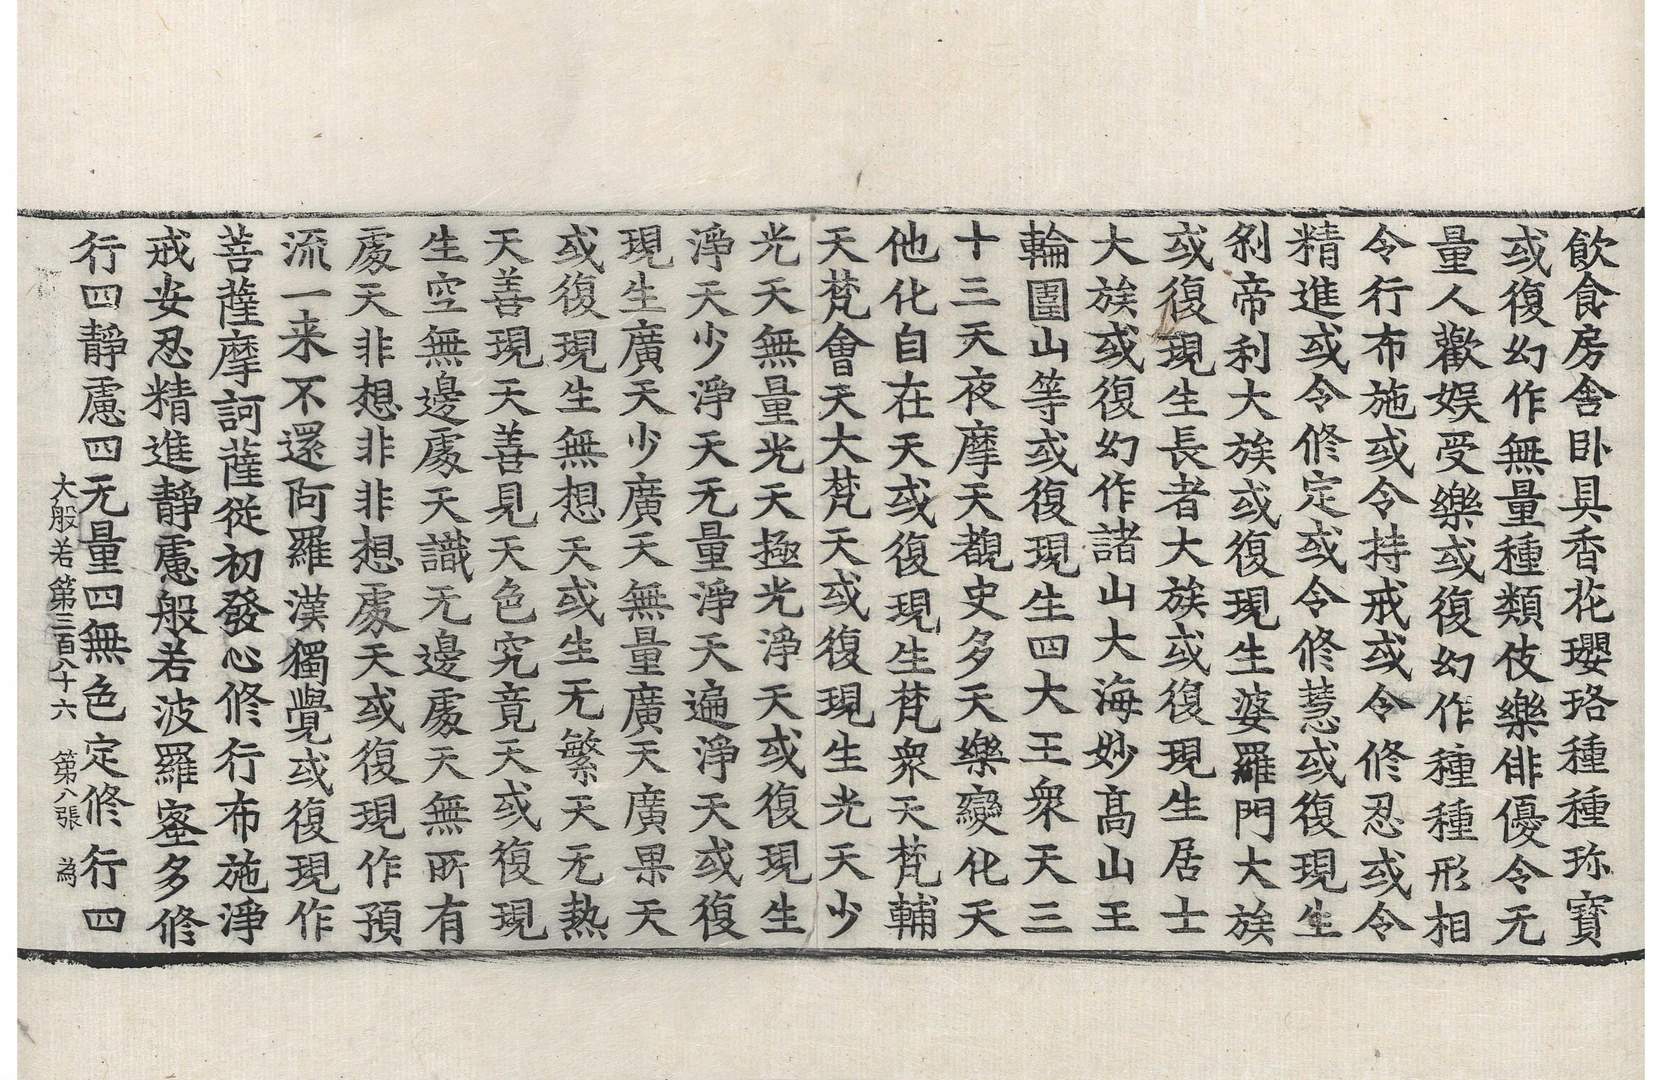 飲食房舎卧具香花瓔珞種種珎寳
或復幻作無量種類伎樂俳優令无
量人歡娯受樂或復幻作種種形相
令行布施或令持戒或令修忍或令
精進或令修定或令修慧或復現生
刹帝利大族或復現生婆羅門大族
或復現生長者大族或復現生居士
大族或復幻作諸山大海妙髙山王
輪圍山等或復現生四大王衆天三
十三天夜摩天覩史多天樂變化天
他化自在天或復現生梵衆天梵輔
天梵會天大梵天或復現生光天少
光天無量光天極光淨天或復現生
淨天少淨天无量淨天遍淨天或復
現生廣天少廣天無量廣天廣果天
或復現生無想天或生无繁天无熱
天善現天善見天色究竟天或復現
生空無邊處天識无邊處天無所有
處天非想非非想處天或復現作預
流一来不還阿羅漢獨覺或復現作
菩薩摩訶薩從初發心修行布施淨
戒安忍精進靜慮般若波羅蜜多修
行四靜慮四无量四無色定修行四
大般若第三百八十六 第八張 為